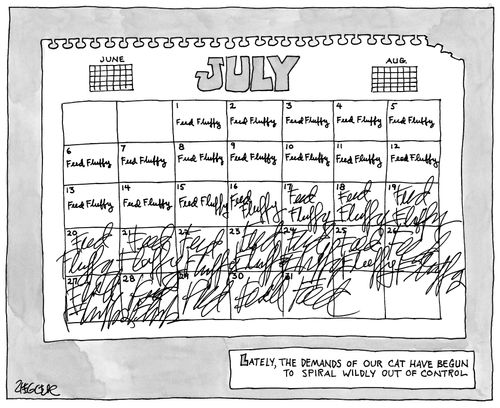 JUNE
JULY
AUG.
1 2 3 4 5
Feed Fluffy Feed Fluffy Feed Fluffy Feed Fluffy Feed Fluffy
6 7 8 9 10 11 12
Feed Fluffy Feed Fluffy Feed Fluffy Feed Fluffy Feed Fluffy Feed Fluffy Feed Fluffy
13 14 15 16 17 18 19
Feed Fluffy Feed Fluffy Feed Fluffy Feed Fluffy Feed Fluffy Feed Fluffy Feed Fluffy
20 21 22 23 24 25 26
Feed Feed Feed Feed
Fluffy Fluffy Fluffy Fluffy Fluffy Fluffy Fluffy
27 28 29 30 31
Feed Feed
LATELY, THE DEMANDS OF OUR CAT HAVE BEGUN
TO SPIRAL WILDLY OUT OF CONTROL
ZIEGLER